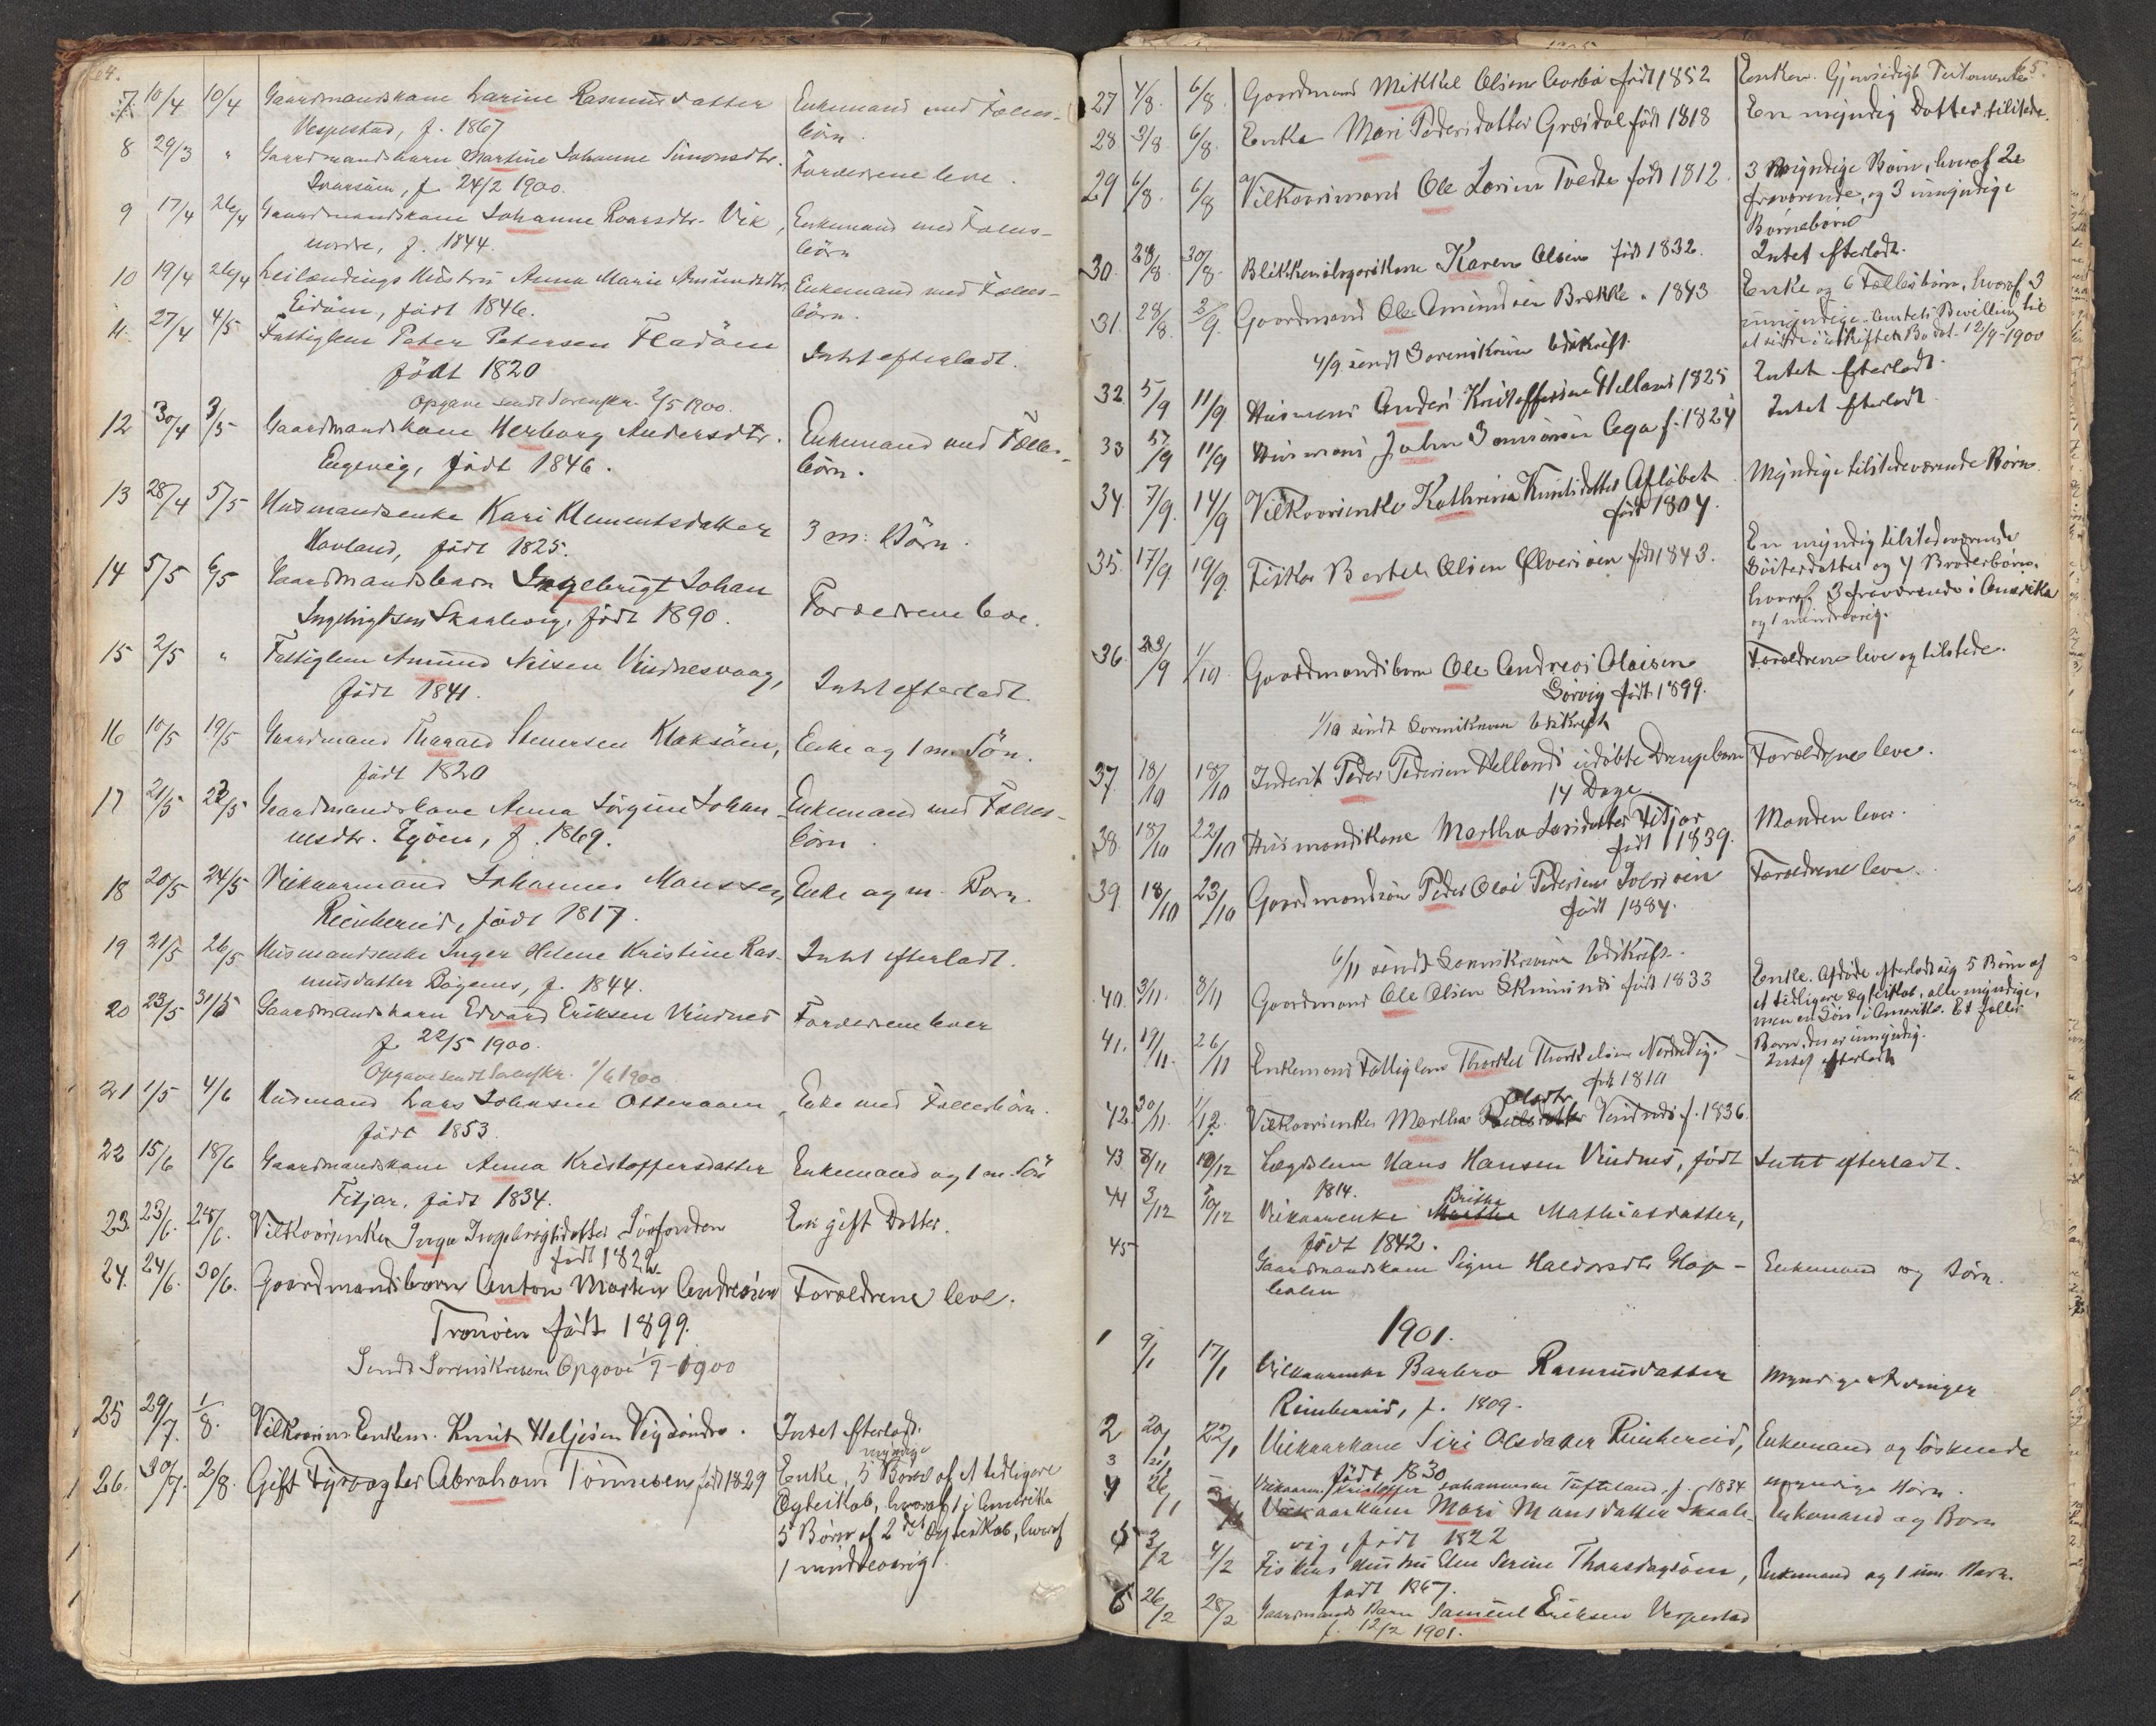 64.
7 10/4 10/4 Gaardmandskone Larine Rasmusdatter Enkemand med Fælles-
Vespestad, f. 1867 börn.
8 29/3 " Gaardmandsbarn Martine Johanne Simonsdtr. Forældrene leve.
f. 24/2 1900.
9 17/4 26/4 Gaardmandskone Johanne Roarsdtr. Vik, Enkemand med Fælles-
nordre, f. 1844. börn
10 19/4 26/4 Leilændings Hustru Anna Marie Amundsdtr. Enkemand med Fælles-
Eidöen, födt 1846. börn.
11. 27/4 4/5 Fattiglem Peter Petersen Fladöen Intet efterladt.
födt 1820
Opgave sendt Sorenskr. 2/5 1900.
12 30/4 3/5 Gaardmandskone Herborg Andersdtr. Enkemand med Fælles-
Engevig, födt 1846. börn.
13 28/4 5/5 Husmandsenke Kari Klementsdatter 3 m: Börn.
Havland, födt 1825.
14 5/5 6/5 Gaardmandsbarn Ingebrigt Johan Forældrene leve.
Ingebrigtsen Skaalevig, födt 1890.
15 2/5 " Fattiglem Amund Nilsen Vindnesvaag, Intet efterladt
födt 1841.
16 10/5 19/5 Gaardmand Tharald Stenersen Klaksöen, Enke og 1 m. Sön.
födt 1820
17 21/5 22/5 Gaardmandskone Anna Jörgine Johan- Enkemand med Fælles-
nesdtr. Egöen, f. 1869. börn.
18 20/5 24/5 Vilkaarmand Johannes Monssen, Enke og m. Barn.
Rimbereid, födt 1817.
19 21/5 26/5 Husmandsenke Inger Helene Kristine Ras- Intet efterladt.
musdatter Bögenes, f. 1844.
20 23/5 31/5 Gaardmandsbarn Edvard Eriksen Vindnes Forældrene lever
f. 22/5 1900.
Opgave sendt Sorenskr. 1/6 1900
21 1/5 4/6 Husmand Lars Johnsen Otteraaen, Enke med Fællesbörn.
födt 1853.
22 15/6 18/6 Gaardmandskone Anna Kristoffersdatter Enkemand og 1 m. Sön
Fitjar, födt 1834.
23. 23/6. 28/6. Vilkaarsenke Inga Ingebrigtsdatter Sörfonden En gift Datter.
født 1822.
24. 24/6. 30/6. Gaardmandsbarn Anton Martin Andreasen Forældrene leve.
Tronöen født 1899.
Sendt Sorenskriveren Opgave 1/7-1900
25 29/7. 1/8. Vilkaars Enkem. Knut Heljesen Vigsöndre. Intet efterladt.
26. 30/7. 2/8. Gift Fyrvogter Abraham Tönnesen født 1829 Enke, 5 myndige Börn af et tidligere
Ægteskab, hvoraf 1 i Amerika
5 Börn af 2det Ægteskab, hvoraf
1 mindreaarig.
65.
27 4/8. 6/8. Gaardmand Mikkel Olsen Aarbø født 1852 Enken. Gjensidigt Testamente.
28 3/8 6/8. Enke Mari Pedersdatter Græsdal født 1818 En myndig Datter tilstede.
29 6/8. 6/8 Vilkaarsmand Ole Larsen Tveite født 1812. 3 Myndige Børn, hvoraf 2
fraværende, og 3 umyndige
Børnebørn
30. 28/8. 30/8. Blikkenslagerkone Karen Olsen født 1832. Intet efterladt.
31. 28/8. 2/9. Gaardmand Ole Amundsen Brække " 1843 Enke og 6 Fællesbørn, hvoraf 3
umyndige. Amtets Bevilling til
at sidde i uskiftet Bo dat. 12/9-1900
4/9 sendt Sorenskriveren Udskrift.
32. 5/9 11/9 Husmand Anders Kristoffersen Helland 1825 Intet efterladt.
33 5/9 11/9 Husmand John Samsonsen Aga f. 1824 Intet efterladt.
34. 7/9. 14/9 Vilkaarsenke Kathrina Knutsdatter Afløbet Myndige tilstedeværende Børn.
født 1804.
35. 17/9. 19/9. Fisker Bertel Olsen Ølversøen født 1843. En myndig tilstedeværende
Søsterdatter og 4 Broderbørn,
hvoraf 3 fraværende i Amerika
og 1 mindreaarig.
36. 23/9 1/10 Gaardmandsbarn Ole Andreas Olaisen Forældrene leve og tilstede.
Sörvig født 1899.
1/10 sendt Sorenskriveren Udskrift
37. 18/10 18/10 Inderst Peder Pedersen Hellands udøbte Drengebarn Forældrene leve.
14 Dage
38. 18/10 22/10 Husmandskone Martha Larsdatter Fitjar Manden lever.
født 1839.
39. 18/10 23/10 Gaardmandssøn Peder Olai Pedersen Ivarsøen Forældrene leve.
født 1884.
6/11 sendt Sorenskriveren Udskrift.
40. 3/11. 8/11 Gaardmand Ole Olsen Skumsnes født 1833 Enke. Afdøde efterlod sig 5 Børn af
et tidligere Ægteskab, alle myndige,
men en Søn i Amerika. Et fælles
Barn, der er umyndig.
41. 19/11. 26/11 Enkemand Fattiglem Thorkel Thorkelsen Nordre Vig. Intet efterladt
født 1810
42. 30/11. 1/12. Vilkaarsenke Martha Olsdtr. Vindnes f. 1836.
43 8/11 10/12 Lægdslem Hans Hansen Vindnes, født Intet efterladt.
1814.
44 3/12 10/12 Vilkaarenke Britha Mathiasdatter,
födt 1842.
45 Gaardmandskone Signe Haldorsdtr. Glop- Enkemand og Börn.
holen
1901.
1 9/1 17/1 Vilkaarenke Barbro Rasmusdatter Myndige Arvinger
Rimbereid, f. 1809.
2 20/1 22/1 Vilkaarkone Siri Olsdatter Rimbereid, Enkemand og Söskende
födt 1830
3 Vilkaarm. Kristoffer Johannesen Tufteland, f. 1834 myndige Börn.
4 26/1 Vilkaarkone Mari Monsdatter Skaale- Enkemand og Barn
vig, födt 1822
5 3/2 4/2 Fiskers Hustru Elen Serine Thorsdagsöen, Enkemand og 1 um. Barn.
födt 1867.
6 26/2 28/2 Gaardmands Barn Samuel Eriksen Vespestad
f. 12/2 1901.